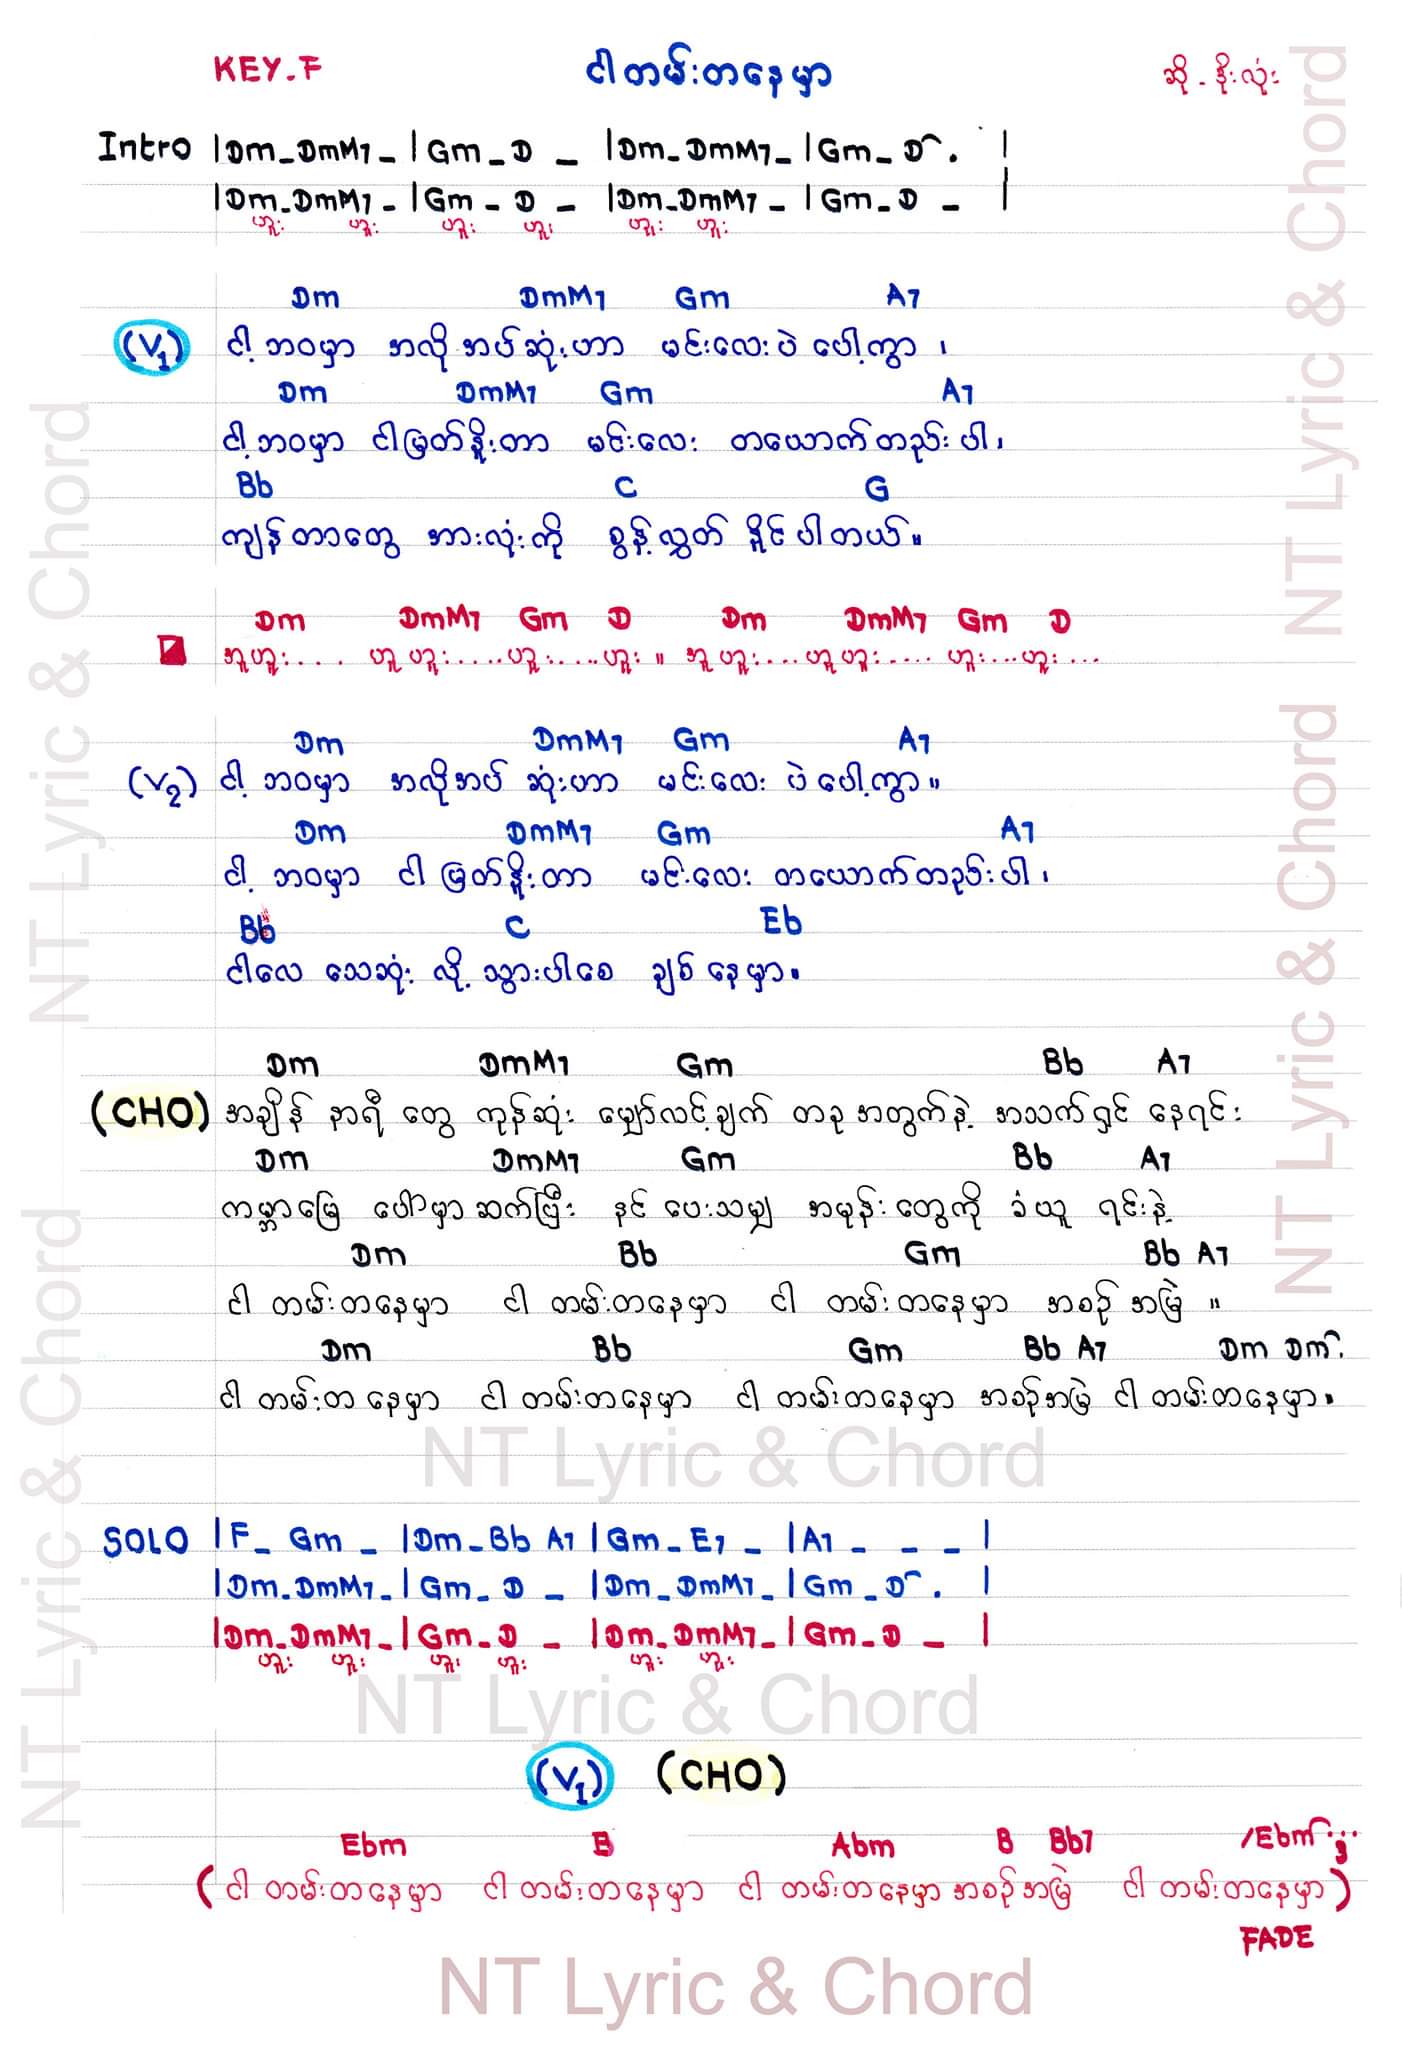 KEY.F ငါတမ်းတနေမှာ ဆို - ဒိုးလုံး
Intro |Dm_DmM7_|Gm_D _ |Dm_DmM7_|Gm_D . |
|Dm_DmM7_|Gm_D _ |Dm_DmM7_|Gm_D _ |
ဟူး ဟူး ဟူး ဟူး ဟူး ဟူး
Dm DmM7 Gm A7
(V1) ငါ့ ဘဝမှာ အလိုအပ်ဆုံးဟာ မင်းလေးပဲ ပေါ့ကွာ ၊
Dm DmM7 Gm A7
ငါ့ဘဝမှာ ငါမြတ်နိူးတာ မင်းလေး တယောက်တည်းပါ ၊
Bb C G
ကျန်တာတွေ အားလုံးကို စွန့်လွှတ် နိူင်ပါတယ် ။
Dm DmM7 Gm D Dm DmM7 Gm D
အူဟူး.... ဟူဟူး....ဟူး....ဟူး ။ အူဟူး...ဟူဟူး.... ဟူး...ဟူး...
Dm DmM7 Gm A7
(V2) ငါ့ ဘဝမှာ အလိုအပ် ဆုံးဟာ မင်းလေး ပဲပေါ့ကွာ ။
Dm DmM7 Gm A7
ငါ့ ဘဝမှာ ငါ မြတ်နိူးတာ မင်းလေး တယောက်တည်းပါ ၊
Bb C Eb
ငါလေ သေဆုံး လို့ သွားပါစေ ချစ်နေမှာ ။
Dm DmM7 Gm Bb A7
(CHO) အချိန် နာရီ တွေ ကုန်ဆုံး မျှော်လင့်ချက် တခုအတွက်နဲ့ အသက်ရှင် နေရင်း
Dm DmM7 Gm Bb A7
ကမ္ဘာမြေ ပေါ်မှာဆက်ပြီး နင် ပေးသမျှ အမုန်းတွေကို ခံယူ ရင်းနဲ့
Dm Bb Gm Bb A7
ငါ တမ်းတနေမှာ ငါ တမ်းတနေမှာ ငါ တမ်းတနေမှာ အစဉ်အမြဲ ။
Dm Bb Gm Bb A7 Dm Dm.
ငါ တမ်းတနေမှာ ငါ တမ်းတနေမှာ ငါ တမ်းတနေမှာ အစဉ်အမြဲ ငါ တမ်းတနေမှာ ။
NT Lyric & Chord
SOLO |F_ Gm _ |Dm_Bb A7 |Gm_E7 _ |A7 _ _ _ |
|Dm_DmM7_|Gm_D _ |Dm_DmM7_|Gm_D . |
|Dm_DmM7_|Gm_D _ |Dm_DmM7_|Gm_D _ |
ဟူး ဟူး ဟူး ဟူး ဟူး ဟူး
NT Lyric & Chord
(V1) (CHO)
Ebm B Abm B Bb7 /Ebm
(ငါ တမ်းတနေမှာ ငါ တမ်းတနေမှာ ငါ တမ်းတနေမှာ အစဉ်အမြဲ ငါ တမ်းတနေမှာ)
FADE
NT Lyric & Chord
NT Lyric & Chord
NT Lyric & Chord
NT Lyric & Chord
NT Lyric & Chord